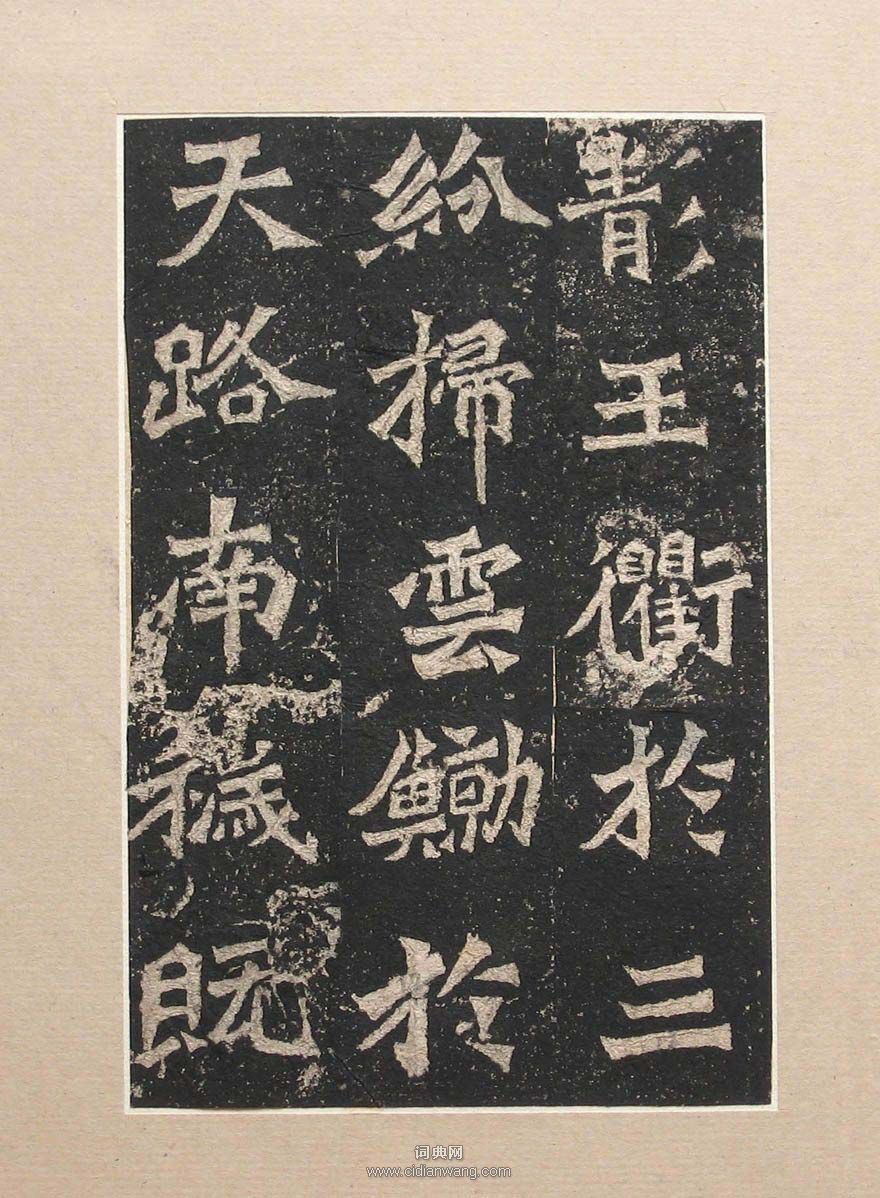 靜王衢於三
紛掃雲䲔於
天路南穢既
词典网
www.cidianwang.com